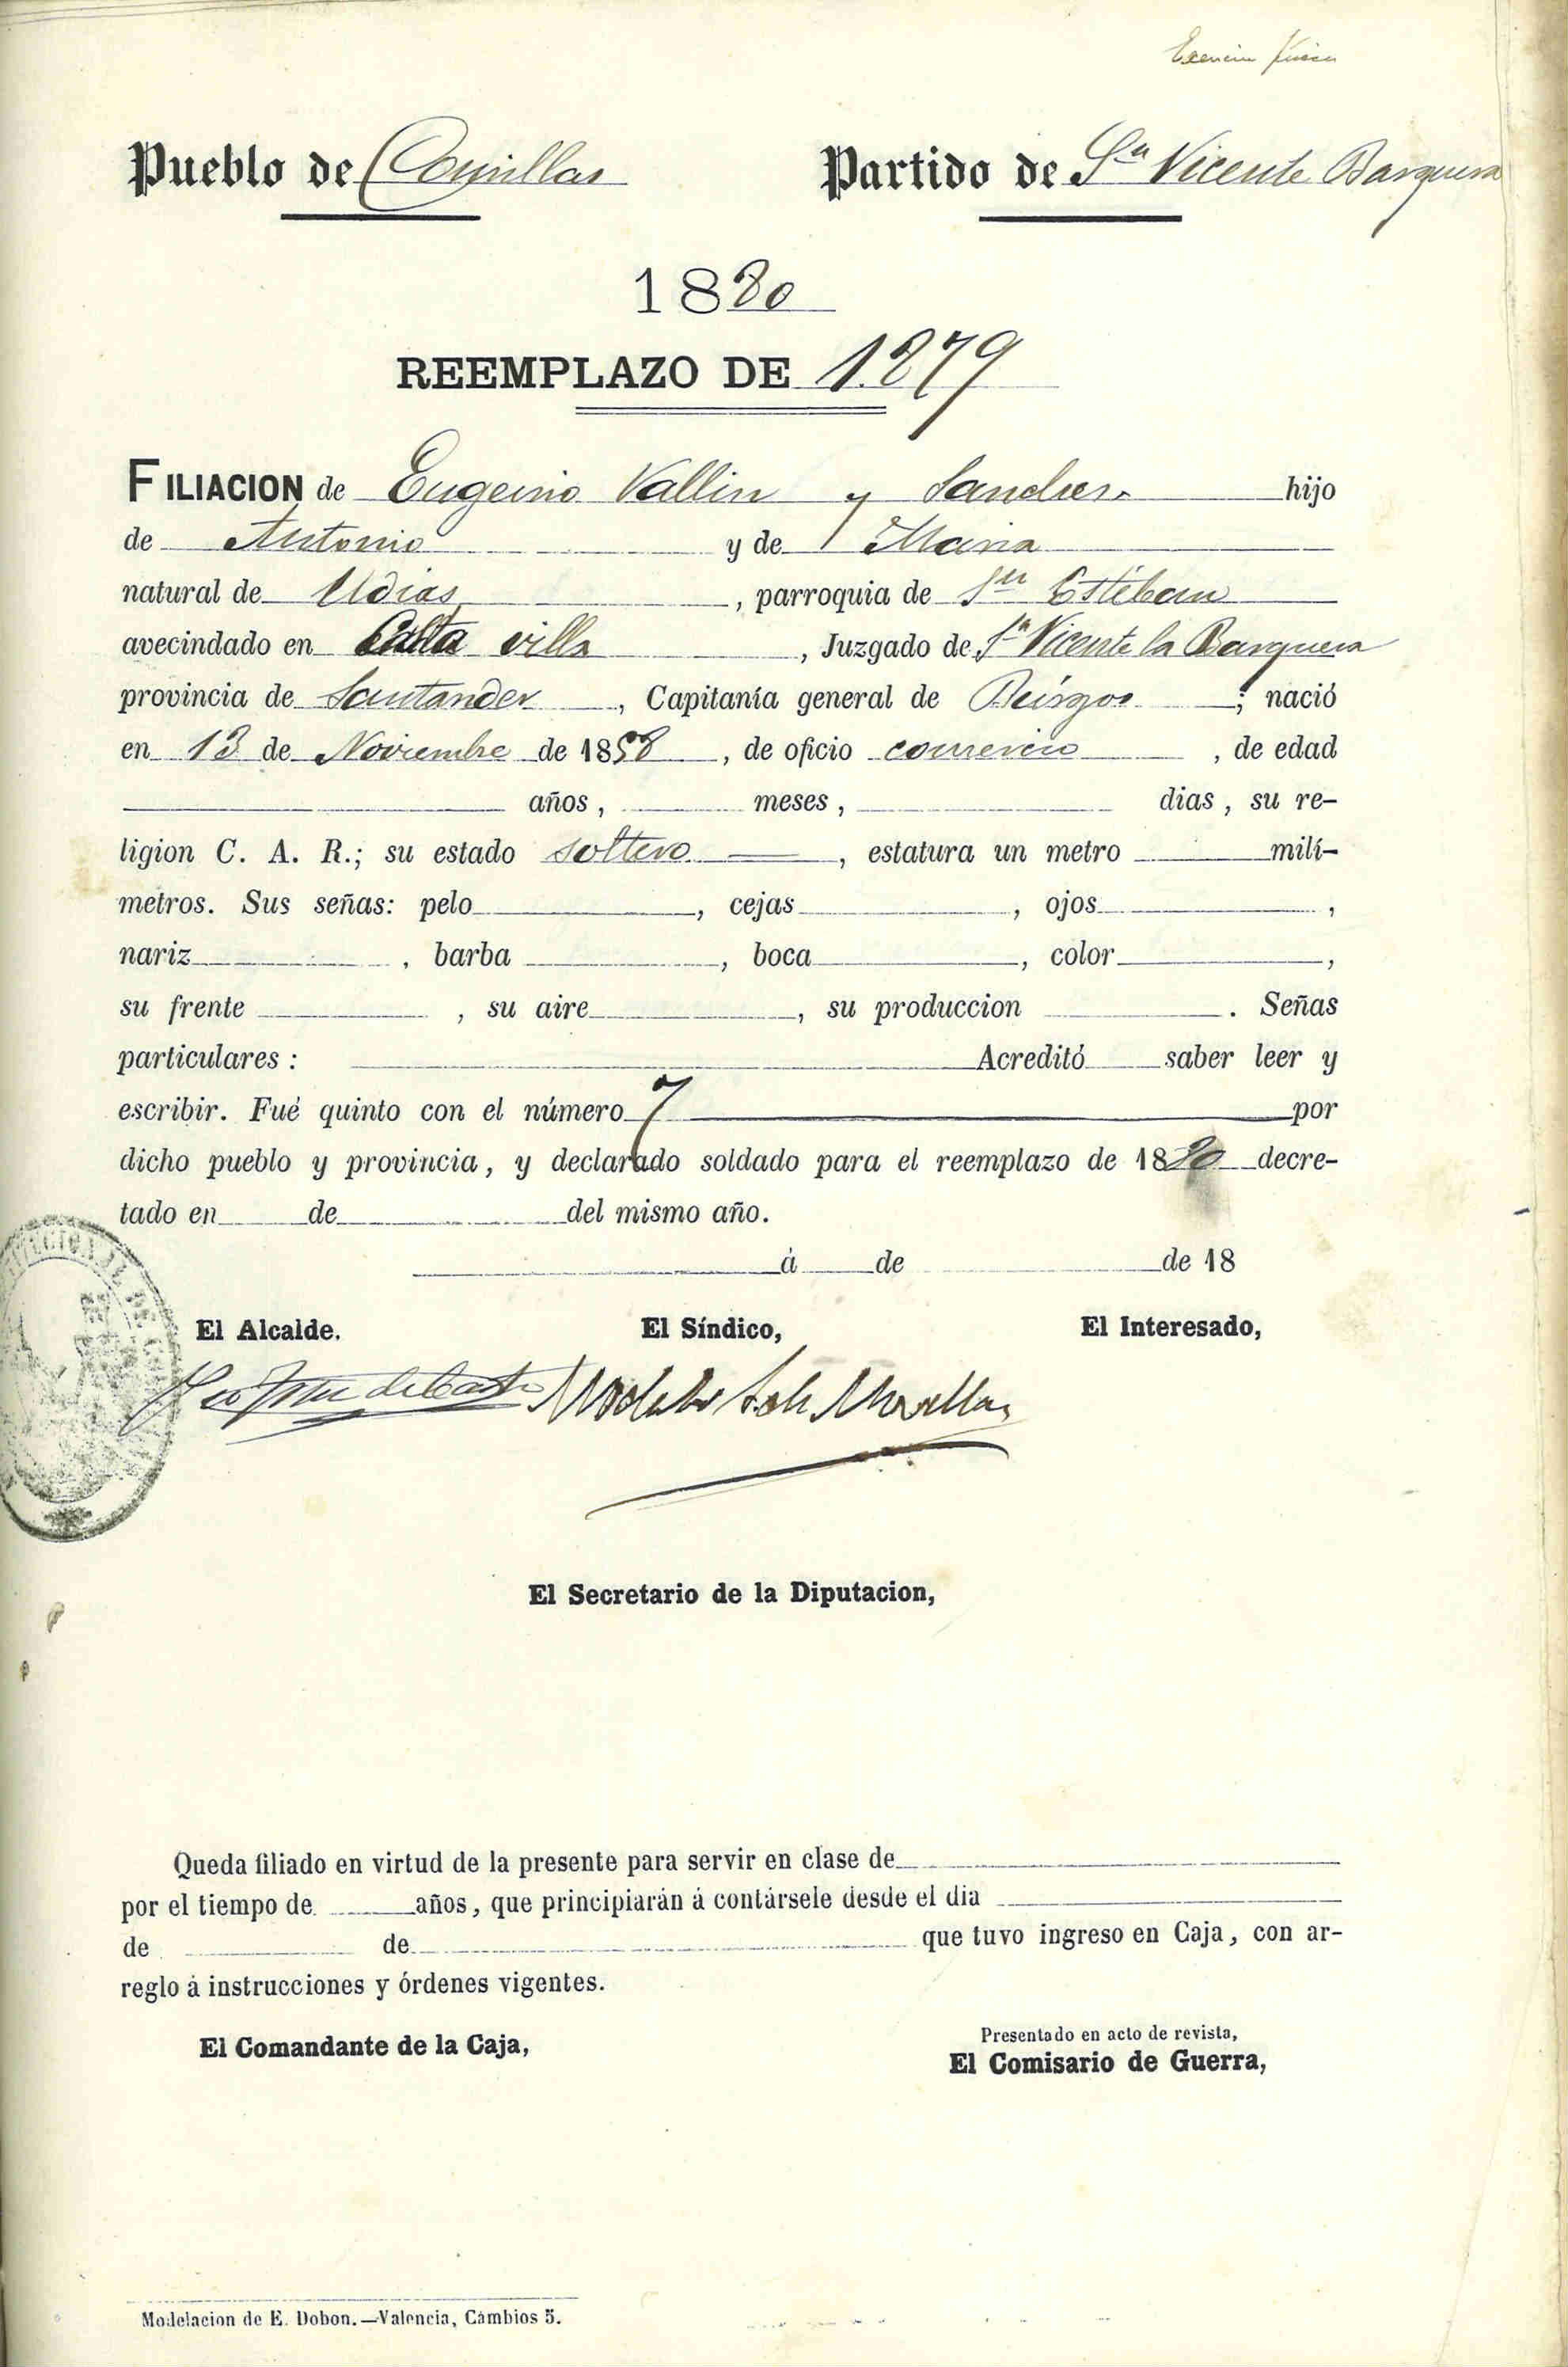 Exencion fisica
Pueblo de Comillas Partido de Sn Vicente Barquera
1880
REEMPLAZO DE 1.879
FILIACION de Eugenio Vallin y Sanches hijo
de Antonio y de Maria
natural de Udias, parroquia de Sn Estéban
avecindado en esta villa, Juzgado de Sn Vicente la Barquera
provincia de Santander, Capitanía general de Búrgos; nació
en 13 de Noviembre de 1858, de oficio comercio, de edad
años, meses, dias, su re-
ligion C. A. R.; su estado soltero, estatura un metro milí-
metros. Sus señas: pelo, cejas, ojos,
nariz, barba, boca, color,
su frente, su aire, su produccion. Señas
particulares: Acreditó saber leer y
escribir. Fué quinto con el número 7 por
dicho pueblo y provincia, y declarado soldado para el reemplazo de 1880 decre-
tado en de del mismo año.
á de de 18
El Alcalde. El Síndico, El Interesado,
El Secretario de la Diputacion,
Queda filiado en virtud de la presente para servir en clase de
por el tiempo de años, que principiarán á contársele desde el dia
de de que tuvo ingreso en Caja, con ar-
reglo á instrucciones y órdenes vigentes.
El Comandante de la Caja,
Presentado en acto de revista,
El Comisario de Guerra,
Modelacion de E. Dobon.—Valencia, Cámbios 5.